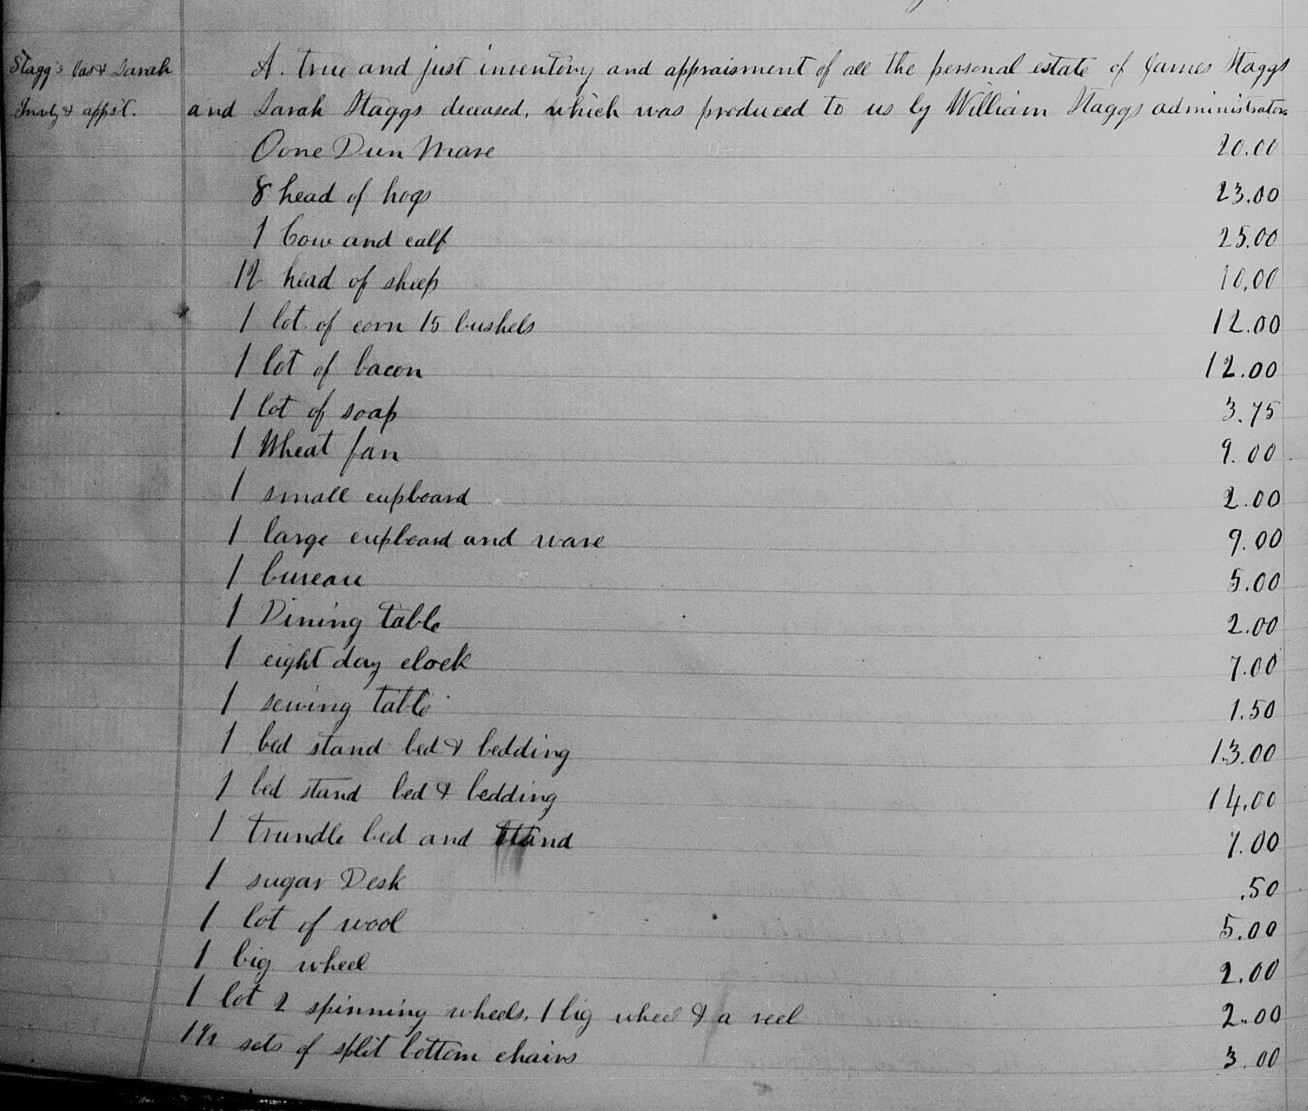 Stagg's Jas & Sarah
Invty & appst.
A. true and just inventory and appraisment of all the personal estate of James Staggs
and Sarah Staggs deceased, which was produced to us by William Staggs administrator
Oone Dun Mare 20.00
8 head of hogs 23.00
1 Cow and calf 25.00
12 head of sheep 10.00
1 lot of corn 15 bushels 12.00
1 lot of bacon 12.00
1 lot of soap 3.75
1 Wheat fan 9.00
1 small cupboard 2.00
1 large cupboard and ware 9.00
1 bureau 5.00
1 Dining table 2.00
1 eight day clock 7.00
1 sewing table 1.50
1 bed stand bed & bedding 13.00
1 bed stand bed & bedding 14.00
1 trundle bed and stand 7.00
1 sugar Desk .50
1 lot of wool 5.00
1 big wheel 2.00
1 lot 2 spinning wheels, 1 big wheel & a reel 2.00
1½ sets of split bottom chairs 3.00